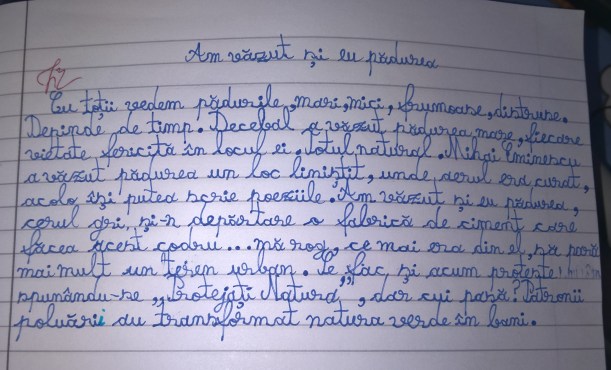 Am văzut și eu pădurea
Cu toții vedem pădurile, mari, mici, frumoase, distruse.
Depinde de timp. Decebal a văzut pădurea mare, fiecare
vietate fericită în locul ei, totul natural. Mihai Eminescu
a văzut pădurea un loc liniștit, unde aerul era curat,
acolo își putea scrie poeziile. Am văzut și eu pădurea,
cerul gri, și-n depărtare o fabrică de ciment care
făcea acest codru... mă rog, ce mai era din el, să pară
mai mult un teren urban. Se fac și acum proteste
spunându-se „Protejați Natura”, dar cui pasă? Patronii
poluării au transformat natura verde în bani.